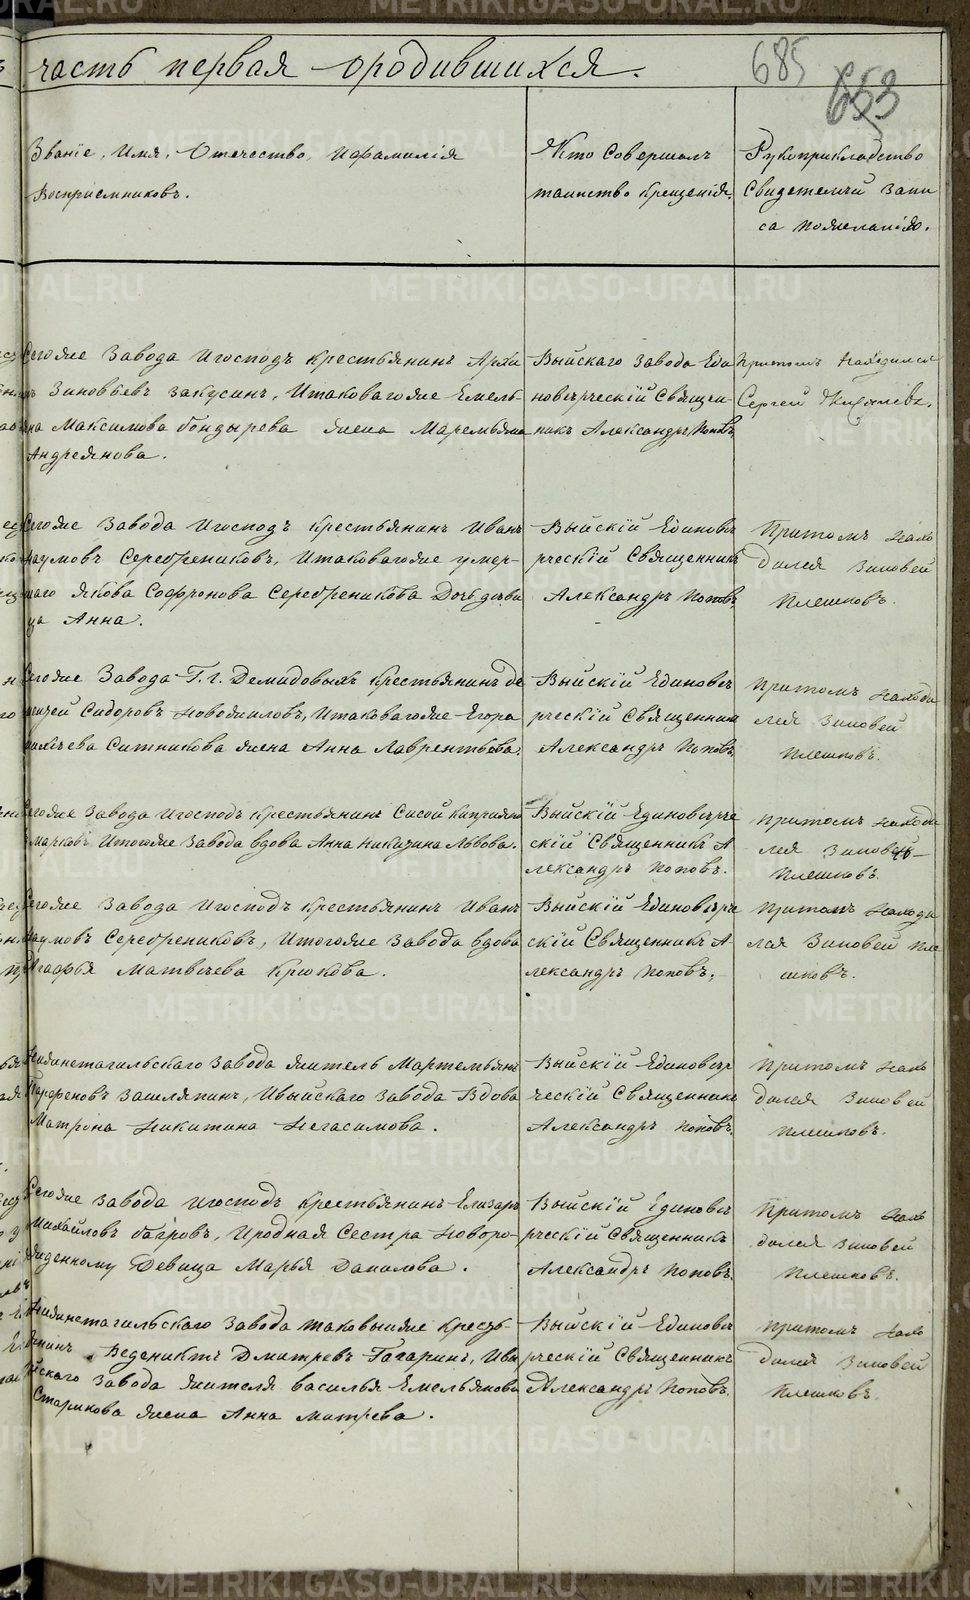 часть первая о родившихся.
685
653
Званіе, Имя, Отечество, Ифамилія
Воспріемниковъ.
Кто Совершалъ
таинство Крещенія.
Рукоприкладство
Свидетелей запи
са пожеланію.
Сегоже Завода Игосподъ Крестьянинъ Архи
Зиновьевъ Закусинъ, Итаковагоже Емель-
на Максимова Бондырева жена Маремьяна
Андреянова.
Выйскаго Завода Еди
новѣрческій Священ-
никъ Александръ Поповъ
Притомъ Находился
Сергей
Сегоже Завода Игосподъ Крестьянинъ Иванъ
Наумовъ Серебрениковъ, Итаковагоже умер-
шаго Якова Софронова Серебреникова Дочь дѣви
ца Анна.
Выйскій Единовѣ
рческій Священникъ
Александръ Поповъ
Притомъ Нахо
дился Зиновей
Плешковъ.
Сегоже Завода Г.г. Демидовыхъ Крестьянинъ
Сидоровъ Новожиловъ, Итаковагоже Егора
Ситникова жена Анна Лаврентьева.
Выйскій Единовѣ
рческій Священник
Александръ Поповъ
Притомъ Находи
лся Зиновей
Плешковъ.
Сегоже Завода Игосподъ Крестьянинъ Сисой Кипріяно
Марковъ Итогоже Завода вдова Анна Никизина Львова.
Выйскій Единовѣрче
скій Священникъ А
лександръ Поповъ.
Притомъ Находи
лся Зиновей
Плешковъ.
Сегоже Завода Игосподъ Крестьянинъ Иванъ
Наумовъ Серебрениковъ, Итогоже Завода вдова
Агафья Матвѣева Крюкова.
Выйскій Единовѣрче
скій Священникъ А-
лександръ Поповъ.
Притомъ Находи
лся Зиновей Пле
шковъ.
Нижнетагильскаго Завода житель Мартемьянъ
Парфеновъ Зашляпинъ, Ивыйскаго Завода Вдова
Матрона Никитина Негасимова.
Выйскій Единовѣр
ческій Священникъ
Александръ Поповъ.
Притомъ Нахо
дился Зиновей
Плешковъ.
Сегоже Завода Игосподъ Крестьянинъ Елизаръ
Михайловъ Багровъ, Иродная Сестра Новоро-
жденному Девица Марья Данилова.
Выйскій Единовѣ
рческій Священникъ
Александръ Поповъ.
Притомъ Нахо
дился Зиновей
Плешковъ.
Нижнетагильскаго Завода таковыйже Кресть-
янинъ Веденихтъ Дмитревъ Гагаринъ, Ивы
йскаго Завода жителя Василья Емельянова
Старикова жена Анна Митрева.
Выйскій Единовѣ
рческій Священникъ
Александръ Поповъ.
Притомъ Нахо
дился Зиновей
Плешковъ.
METRIKI.GASO-URAL.RU